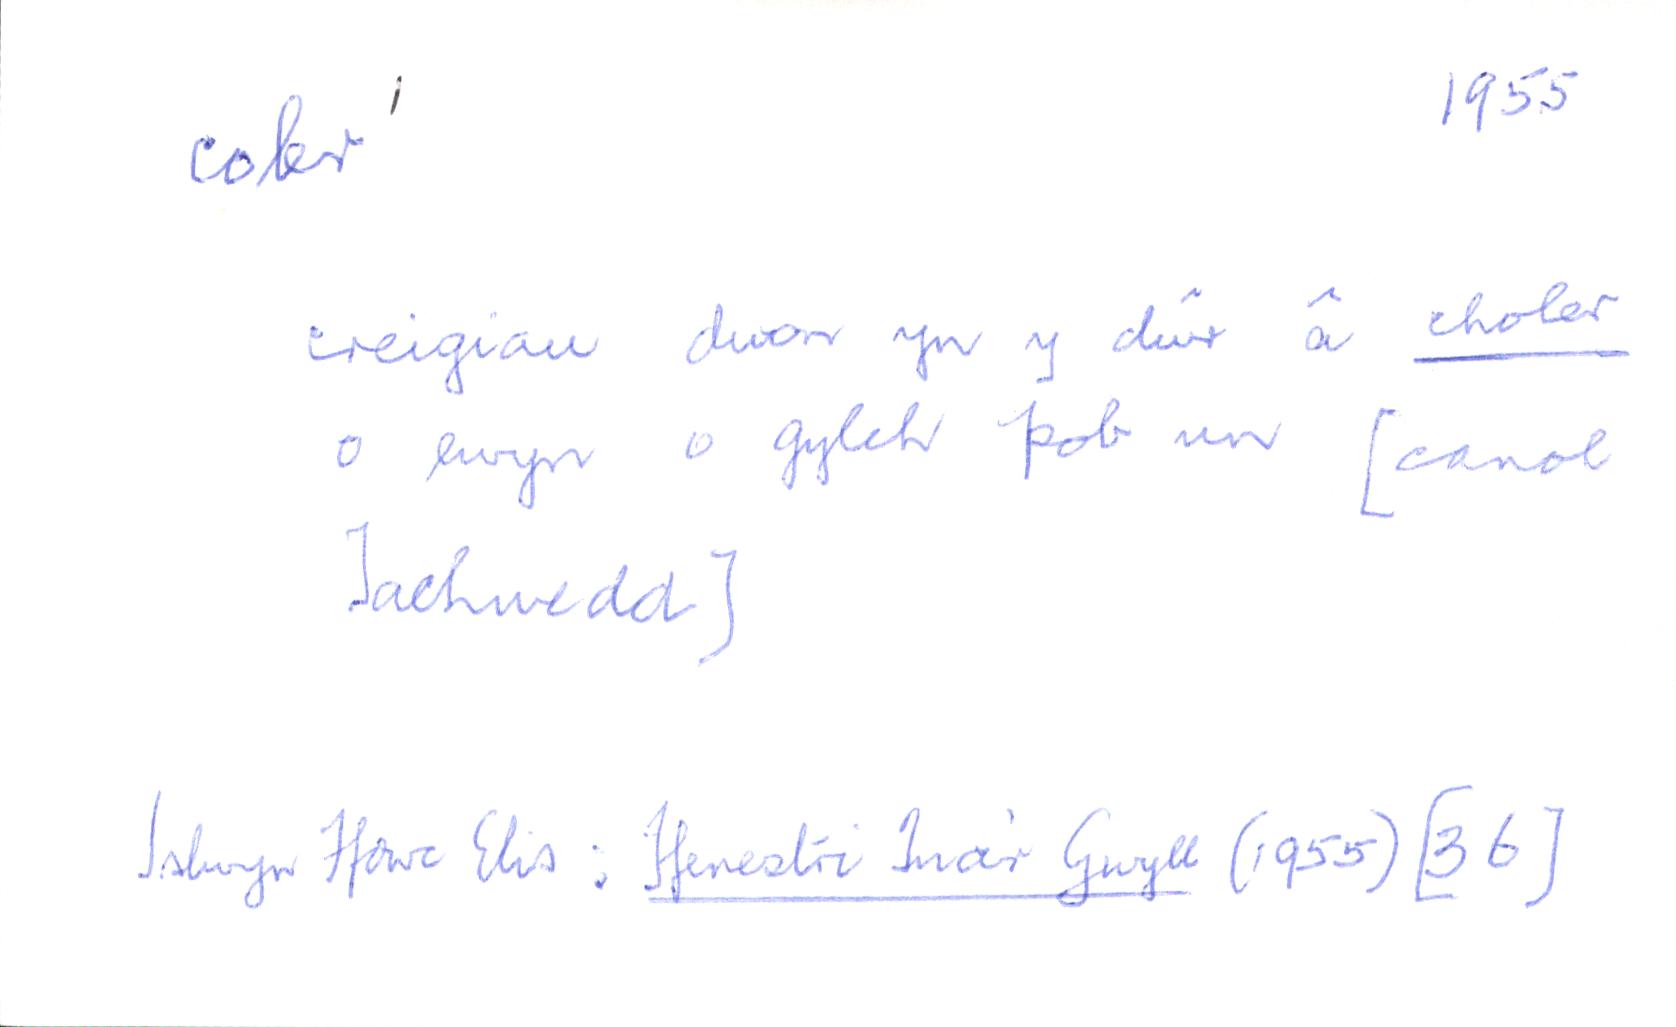 coler ¹ 1955
creigiau duon yn y dŵr â choler
o ewyn o gylch pob un [canol
Tachwedd]
Islwyn Ffowc Elis : Ffenestri Tua'r Gwyll (1955) [36]